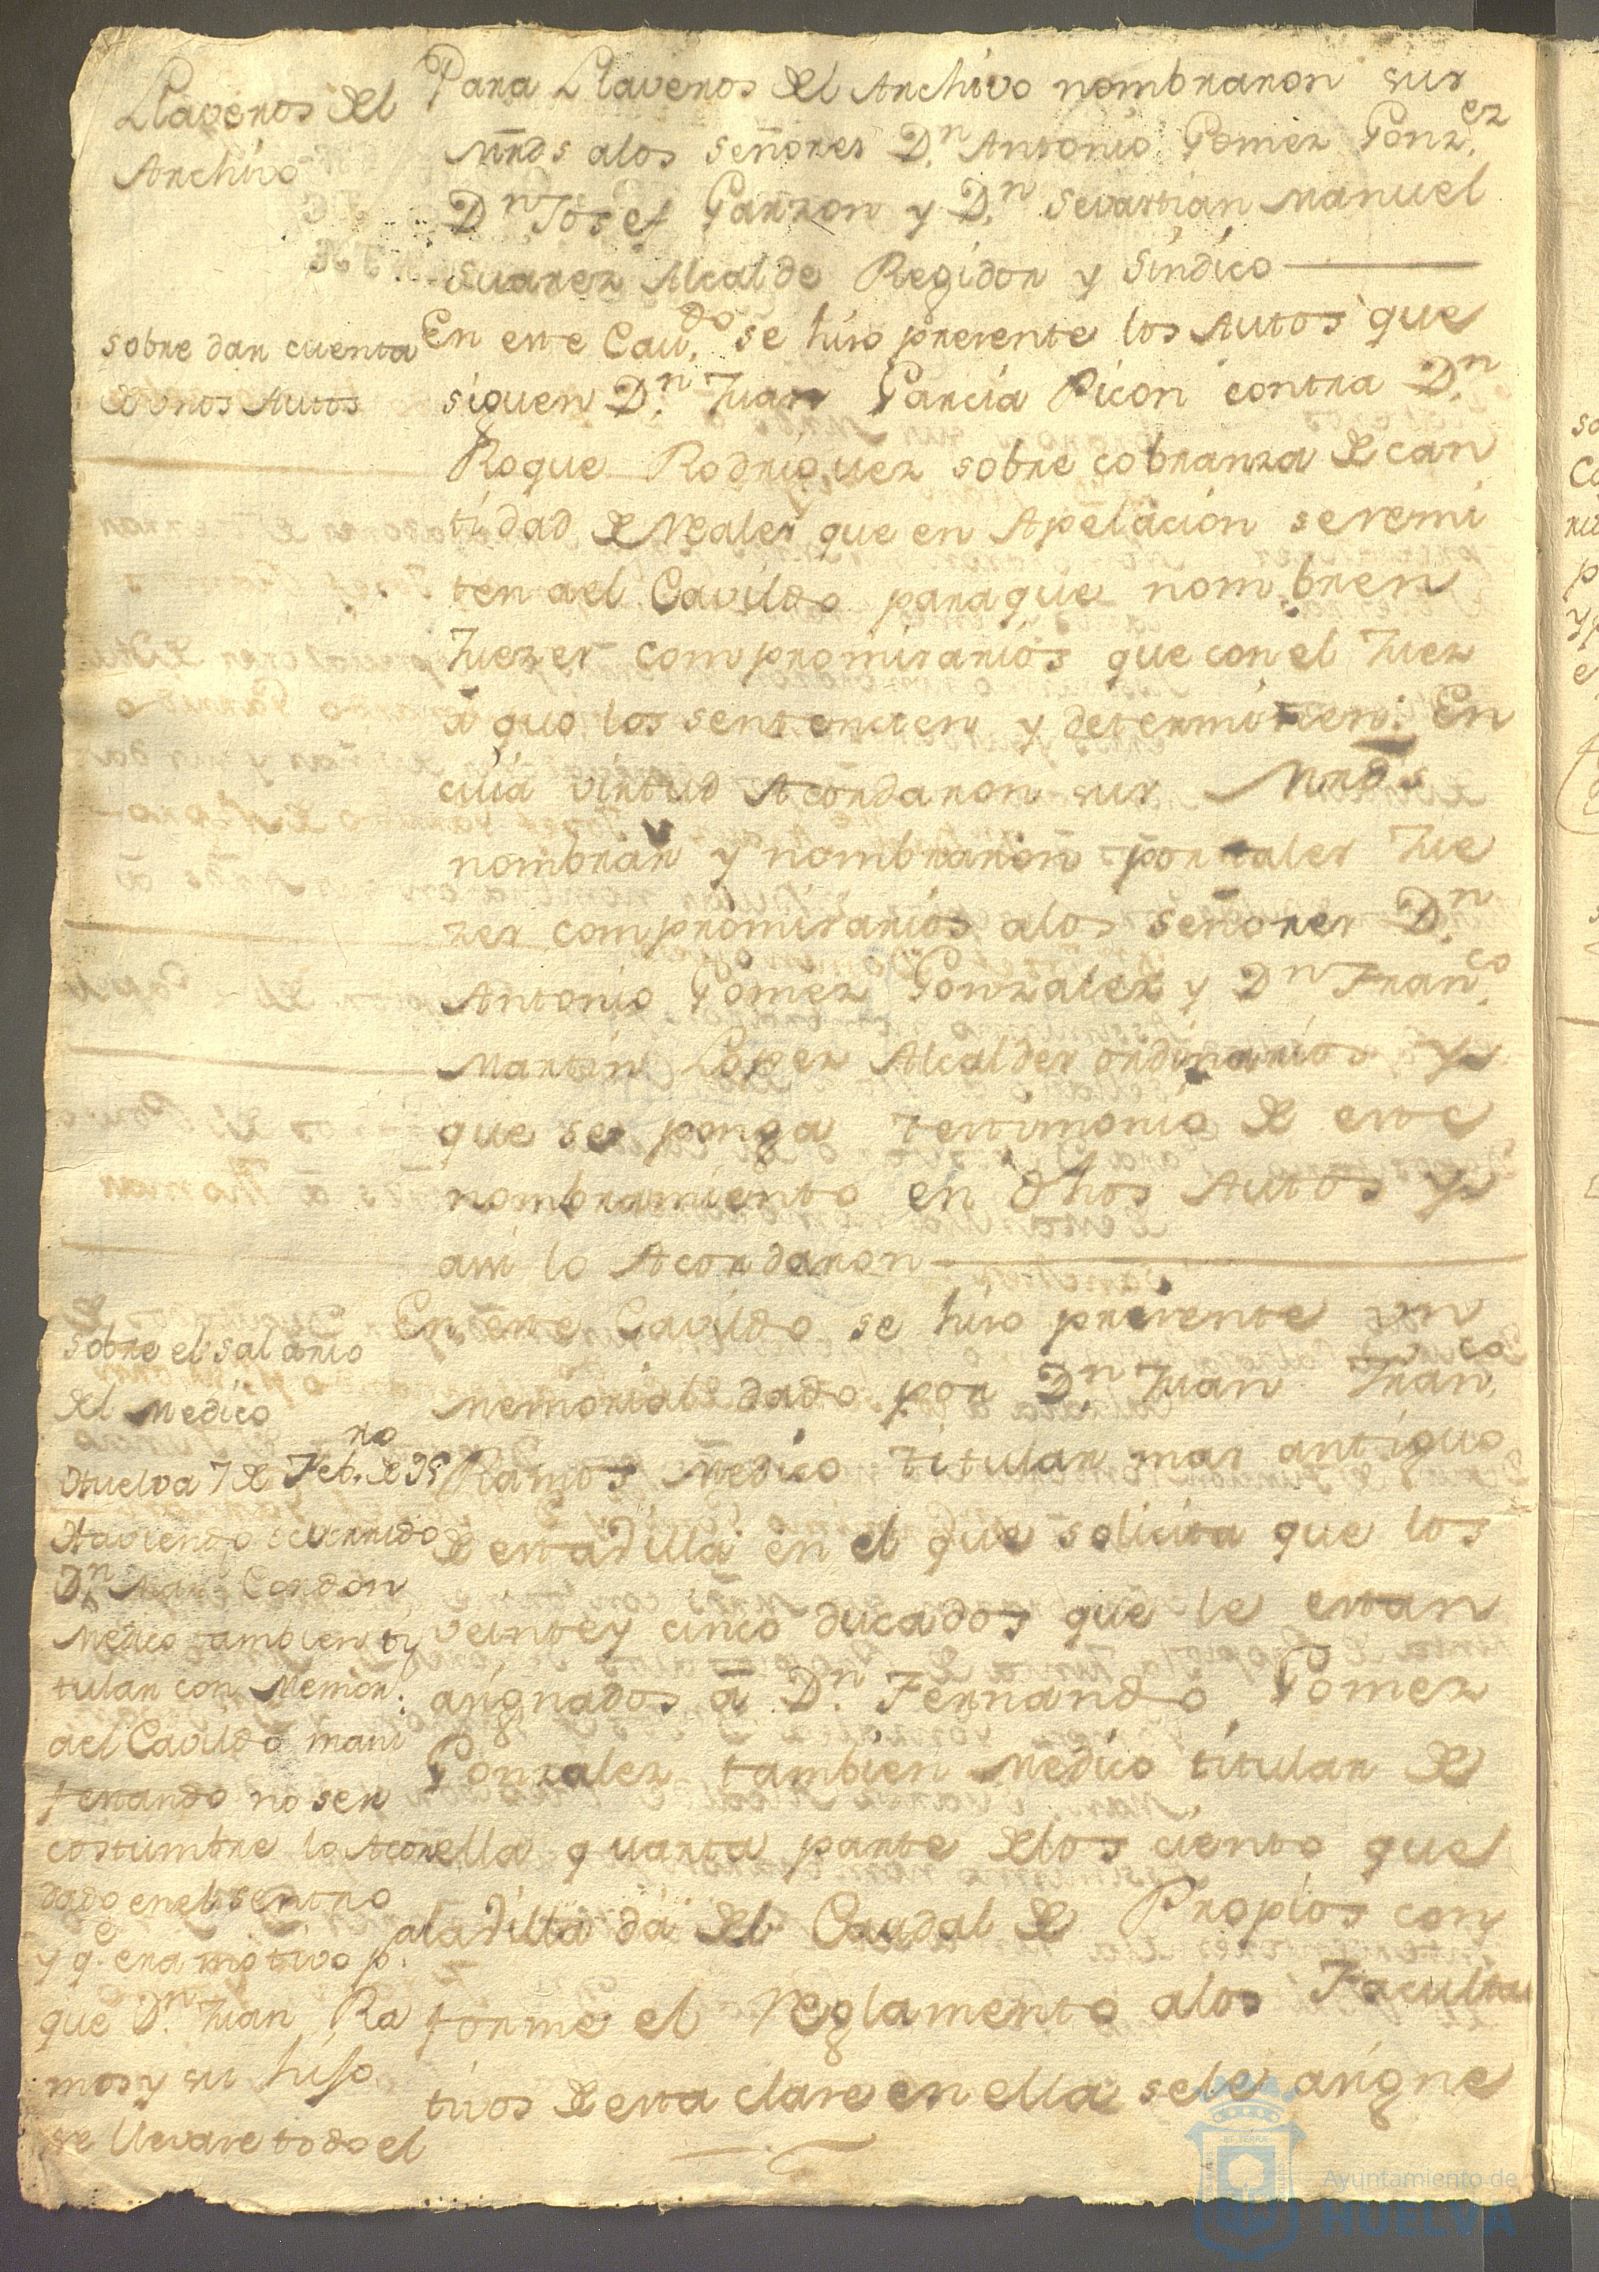 Llaveros del
Archivo
Para Llaveros del Archivo nombraron sus
Mrds alos señores Dn. Antonio Gomez Gonz.ez
Dn Josef Garzon y Dn. Sevastian Manuel
Suarez Alcalde Regidor y Sindico
sobre dar cuenta
de unos Autos
En este Cav.do se hiso presente los Autos que
siguen Dn. Juan Garcia Picon contra Dn.
Roque Rodriguez sobre cobranza de can
tidad de Reales que en Apelacion se remi
ten ael Cavildo paraque nombren
Juezes compromisarios que con el Juez
á quo los sentencien y determinen: En
cuia virtud Acordaron sus Mrds
nombrar y nombraron por tales Jue
zes compromisarios alos señores Dn.
Antonio Gomez Gonzalez y Dn Fran.co
Martin Lopez Alcaldes ordinarios y
que se ponga testimonio de este
nombramiento en dhos Autos y
assi lo Acordaron
sobre el salario
del Medico
Huelva 7 de Feb.ro de 95
Haviendo ocurrido
Dn. Cordon
Medico tambien ti
tular con Memor.
ael Cavildo mani
festando no ser
costumbre lo Acor
dado en el sentro
y q.e era motivo p.
que Dn. Juan Ra
mos y su hijo
se llevare todo el
En este Cavildo se hiso presente un
Memorial dado por Dn. Juan Fran.co
Ramos Medico titular mas antiguo
de esta Villa en el que solicita que los
veinte y cinco ducados que le estan
asignados á Dn. Fernando Gomez
Gonzalez tambien Medico titular de
ella quarta parte delos ciento que
ala Villa dá del Caudal de Propios con
forme el reglamento alos Faculta
tivos de esta clare en ella sele asigne
Ayuntamiento de
HUELVA